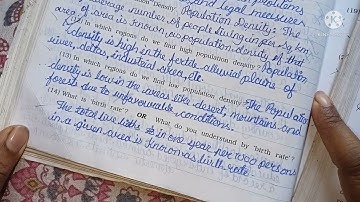 and legal measures
Population Density: The
average number of people living in per sq. km.
area of area is known as population density of that
(12) In which regions do we find high population density? Population
density is high in the fertile alluvial plains of
river, deltas, industrial area, etc.
(13) In which regions do we find low population density? The Population
density is low in the areas like desert, mountains and
forests due to unfavourable conditions.
(14) What is 'birth rate'? OR What do you understand by 'birth rate'?
The total live births in one year per 1000 persons
in a given area is known as birth rate.